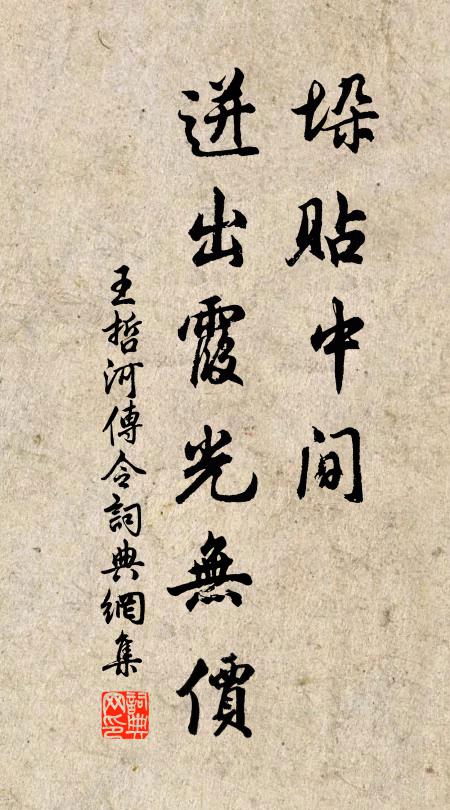 垛貼中間
迸出霞光無價
王哲河傳令詞典網集
詞典网印